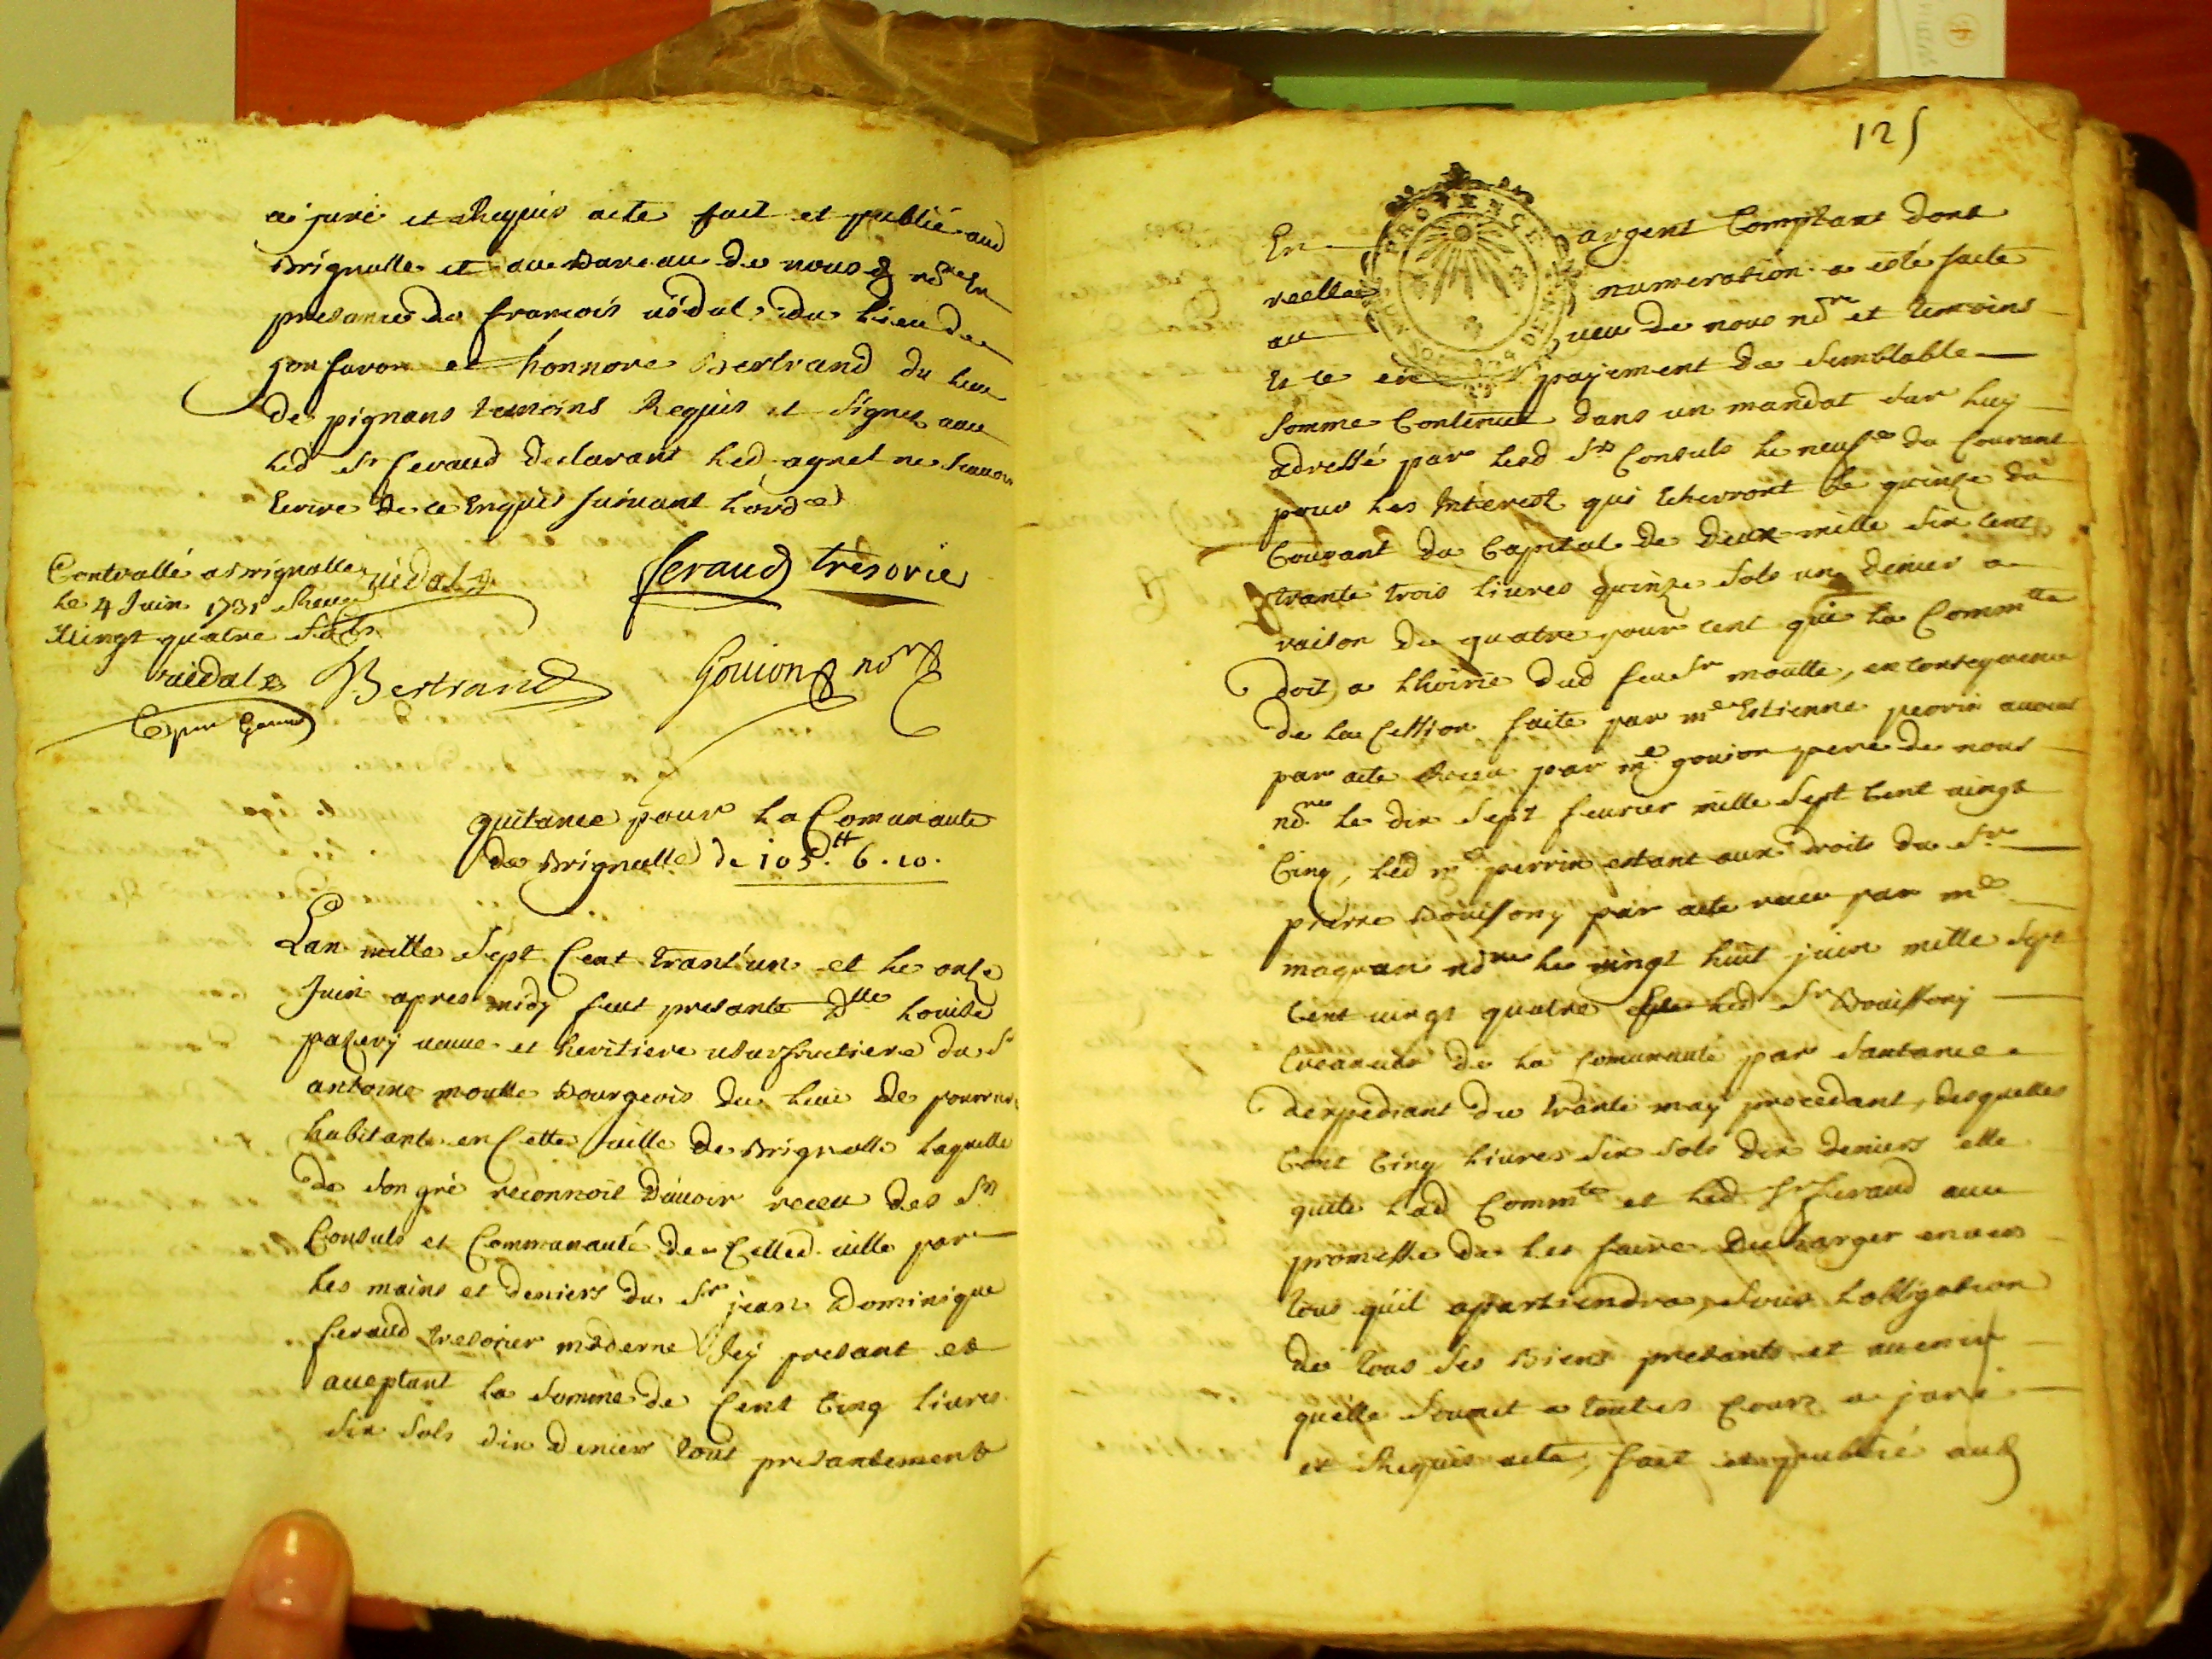 a juré et Requis acte fait et publié aud
Brignolle et au Bureau de nous d nore En
presance de francois vidal du lieu de
gonfaron et honnore Bertrand du lieu
de pignans temoins Requis et signes avec
led Sr feraud declarant led agnel ne scavoir
Ecrire de ce Enquis suivant lord
Controllé a Brignolle
le 4 Juin 1731 Receu
Vingt quatre sols
vidal
feraud tresorier
vidal Bertrand Gouion nore
quitance pour la Comunaute
de Brignolle de 105 tt 6 . 10 .
Lan mille Sept Cent trant'un et le onze
Juin apres midy feut presante Dlle Louise
pazery veuve et heritiere usurfructiere du Sr
antoine moutte Bourgeois du lieu de pourrieres
habitante en Cette ville de Brignolle laquelle
de son gré reconnoit D'avoir receu des Srs
Consuls et Communauté de Cetted. ville par
les mains et deniers du Sr jean Dominique
feraud tresorier moderne Icy presant et
aceptant la somme de Cent Cinq livres
Six sols dix deniers tout presantement
125
PROVENCE
En argent Comptant dont
reelle numeration a esté faite
au veu de nous nore et temoins
Et ce en payement de semblable
somme Contenue dans un mandat sur luy
adressé par lesd Srs Consuls le neuf du Courant
pour les Interest qui Echerront le quinze du
Courant du Capital de Deux mille six cent
trante trois livres quinze sols un denier a
raison de quatre pour cent que la Commtte
doit a lhoirie dud feu Sr moutte, en consequence
de la Cession faite par me Estienne perrin avocat
par acte Receu par me gouion pere de nous
nore le dix sept fevrier mille sept Cent vingt
Cinq, led me perrin estant aux droits du Sr
pierre Bouissony par acte receu par me
magnan nore le vingt huit juin mille sept
Cent vingt quatre led Sr Bouissony
Creancier de la Comunauté par santance
dexpediant du trante may procedant, desquelles
Cent Cinq livres six sols dix deniers elle
quite lad Commte et led Sr feraud avec
promesse de les faire decharger envers
tous quil apartiendra, sous lobligation
de tous ses Biens presants et avenir
quelle soumet a toutes Cours a juré
et Requis acte, fait et publié aud